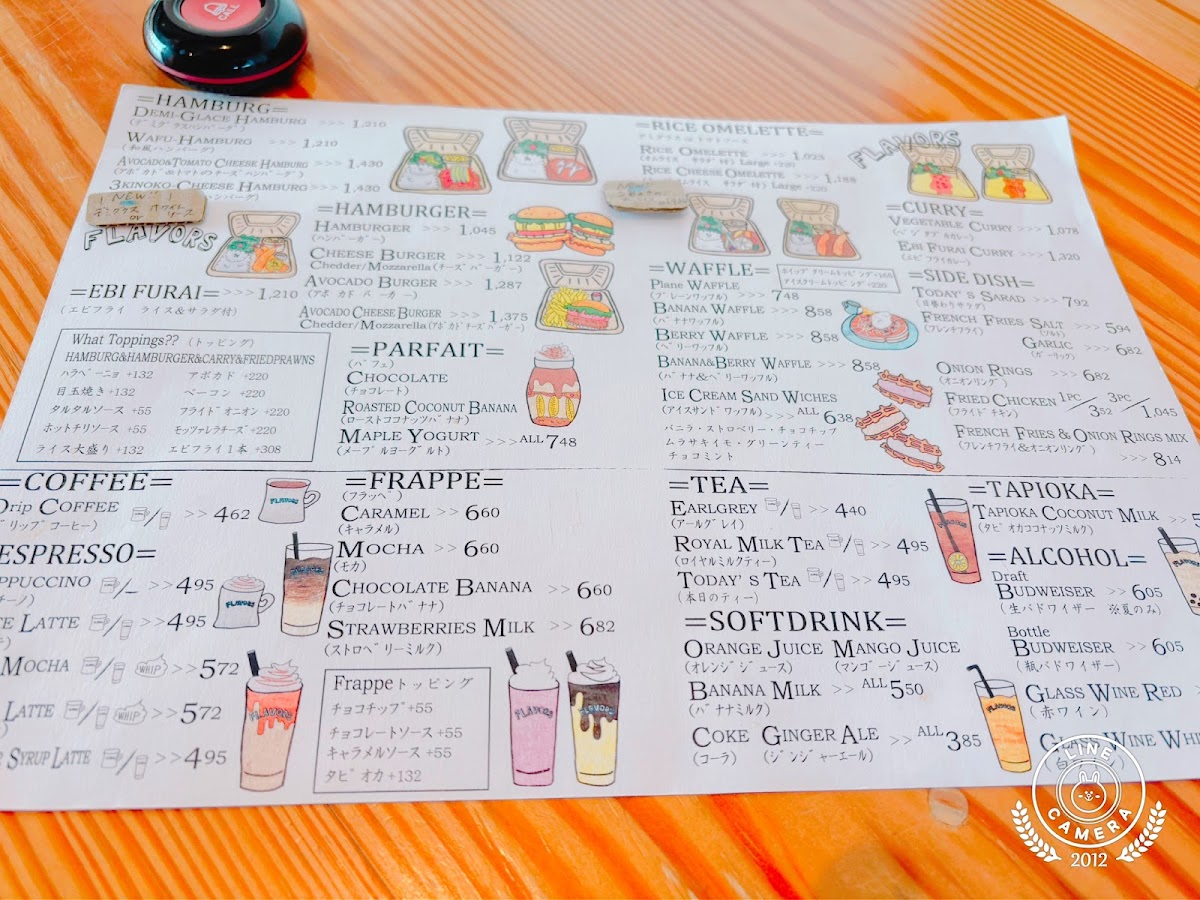 CALL
=HAMBURG=
DEMI-GLACE HAMBURG >>> 1,210
(デミグラスハンバーグ)
WAFU-HAMBURG >>> 1,210
(和風ハンバーグ)
AVOCADO&TOMATO CHEESE HAMBURG >>> 1,430
(アボカド&トマトのチーズハンバーグ)
3KINOKO-CHEESE HAMBURG >>> 1,430
ハンバーグ)
NEW
デミグラス ホワイト
or ソース
FLAVORS
=EBI FURAI= >>> 1,210
(エビフライ ライス&サラダ付)
What Toppings?? (トッピング)
HAMBURG&HAMBURGER&CARRY&FRIEDPRAWNS
ハラペーニョ +132 アボカド +220
目玉焼き +132 ベーコン +220
タルタルソース +55 フライドオニオン +220
ホットチリソース +55 モッツァレラチーズ +220
ライス大盛り +132 エビフライ1本 +308
=HAMBURGER=
HAMBURGER >>> 1,045
(ハンバーガー)
CHEESE BURGER >>> 1,122
Chedder/Mozzarella (チーズバーガー)
AVOCADO BURGER >>> 1,287
(アボカドバーガー)
AVOCADO CHEESE BURGER >>> 1,375
Chedder/Mozzarella (アボカドチーズバーガー)
=PARFAIT=
(パフェ)
CHOCOLATE
(チョコレート)
ROASTED COCONUT BANANA
(ローストココナッツバナナ)
MAPLE YOGURT >>> ALL 748
(メープルヨーグルト)
=RICE OMELETTE=
デミグラス or トマトソース
RICE OMELETTE >>> 1,023
(オムライス サラダ付) Large +220
RICE CHEESE OMELETTE >>> 1,188
サラダ付) Large +220
FLAVORS
=CURRY=
VEGETABLE CURRY >>> 1,078
(ベジタブルカレー)
EBI FURAI CURRY >>> 1,320
(エビフライカレー)
=WAFFLE=
ホイップクリームトッピング +165
アイスクリームトッピング +220
Plane WAFFLE >>> 748
(プレーンワッフル)
BANANA WAFFLE >>> 858
(バナナワッフル)
BERRY WAFFLE >>> 858
(ベリーワッフル)
BANANA&BERRY WAFFLE >>> 858
(バナナ&ベリーワッフル)
ICE CREAM SAND WICHES
(アイスサンドワッフル) >>> ALL 638
バニラ・ストロベリー・チョコチップ
ムラサキイモ・グリーンティー
チョコミント
=SIDE DISH=
TODAY'S SARAD >>> 792
(日替わりサラダ)
FRENCH FRIES SALT >>> 594
(フレンチフライ) (ソルト)
GARLIC >>> 682
(ガーリック)
ONION RINGS >>> 682
(オニオンリング)
FRIED CHICKEN 1PC/352 3PC/1,045
(フライドチキン)
FRENCH FRIES & ONION RINGS MIX
(フレンチフライ&オニオンリング)
>>> 814
=COFFEE=
Drip COFFEE >> 462
リップコーヒー)
ESPRESSO=
PPUCCINO >> 495
チーノ)
LATTE >> 495
MOCHA WHIP >> 572
LATTE WHIP >> 572
SYRUP LATTE >> 495
FLAVORS
=FRAPPE=
(フラッペ)
CARAMEL >> 660
(キャラメル)
MOCHA >> 660
(モカ)
CHOCOLATE BANANA >> 660
(チョコレートバナナ)
STRAWBERRIES MILK >> 682
(ストロベリーミルク)
Frappeトッピング
チョコチップ+55
チョコレートソース +55
キャラメルソース +55
タピオカ +132
FLAVORS
FLAVORS
=TEA=
EARLGREY >> 440
(アールグレイ)
ROYAL MILK TEA >> 495
(ロイヤルミルクティー)
TODAY'S TEA >> 495
(本日のティー)
=SOFTDRINK=
ORANGE JUICE MANGO JUICE
(オレンジジュース) (マンゴージュース)
BANANA MILK >> ALL 550
(バナナミルク)
COKE GINGER ALE >> ALL 385
(コーラ) (ジンジャーエール)
=TAPIOKA=
TAPIOKA COCONUT MILK >>
(タピオカココナッツミルク)
=ALCOHOL=
Draft
BUDWEISER >> 605
(生バドワイザー ※夏のみ)
Bottle
BUDWEISER >> 605
(瓶バドワイザー)
GLASS WINE RED
(赤ワイン)
GLASS WINE WHI
LINE
CAMERA
2012